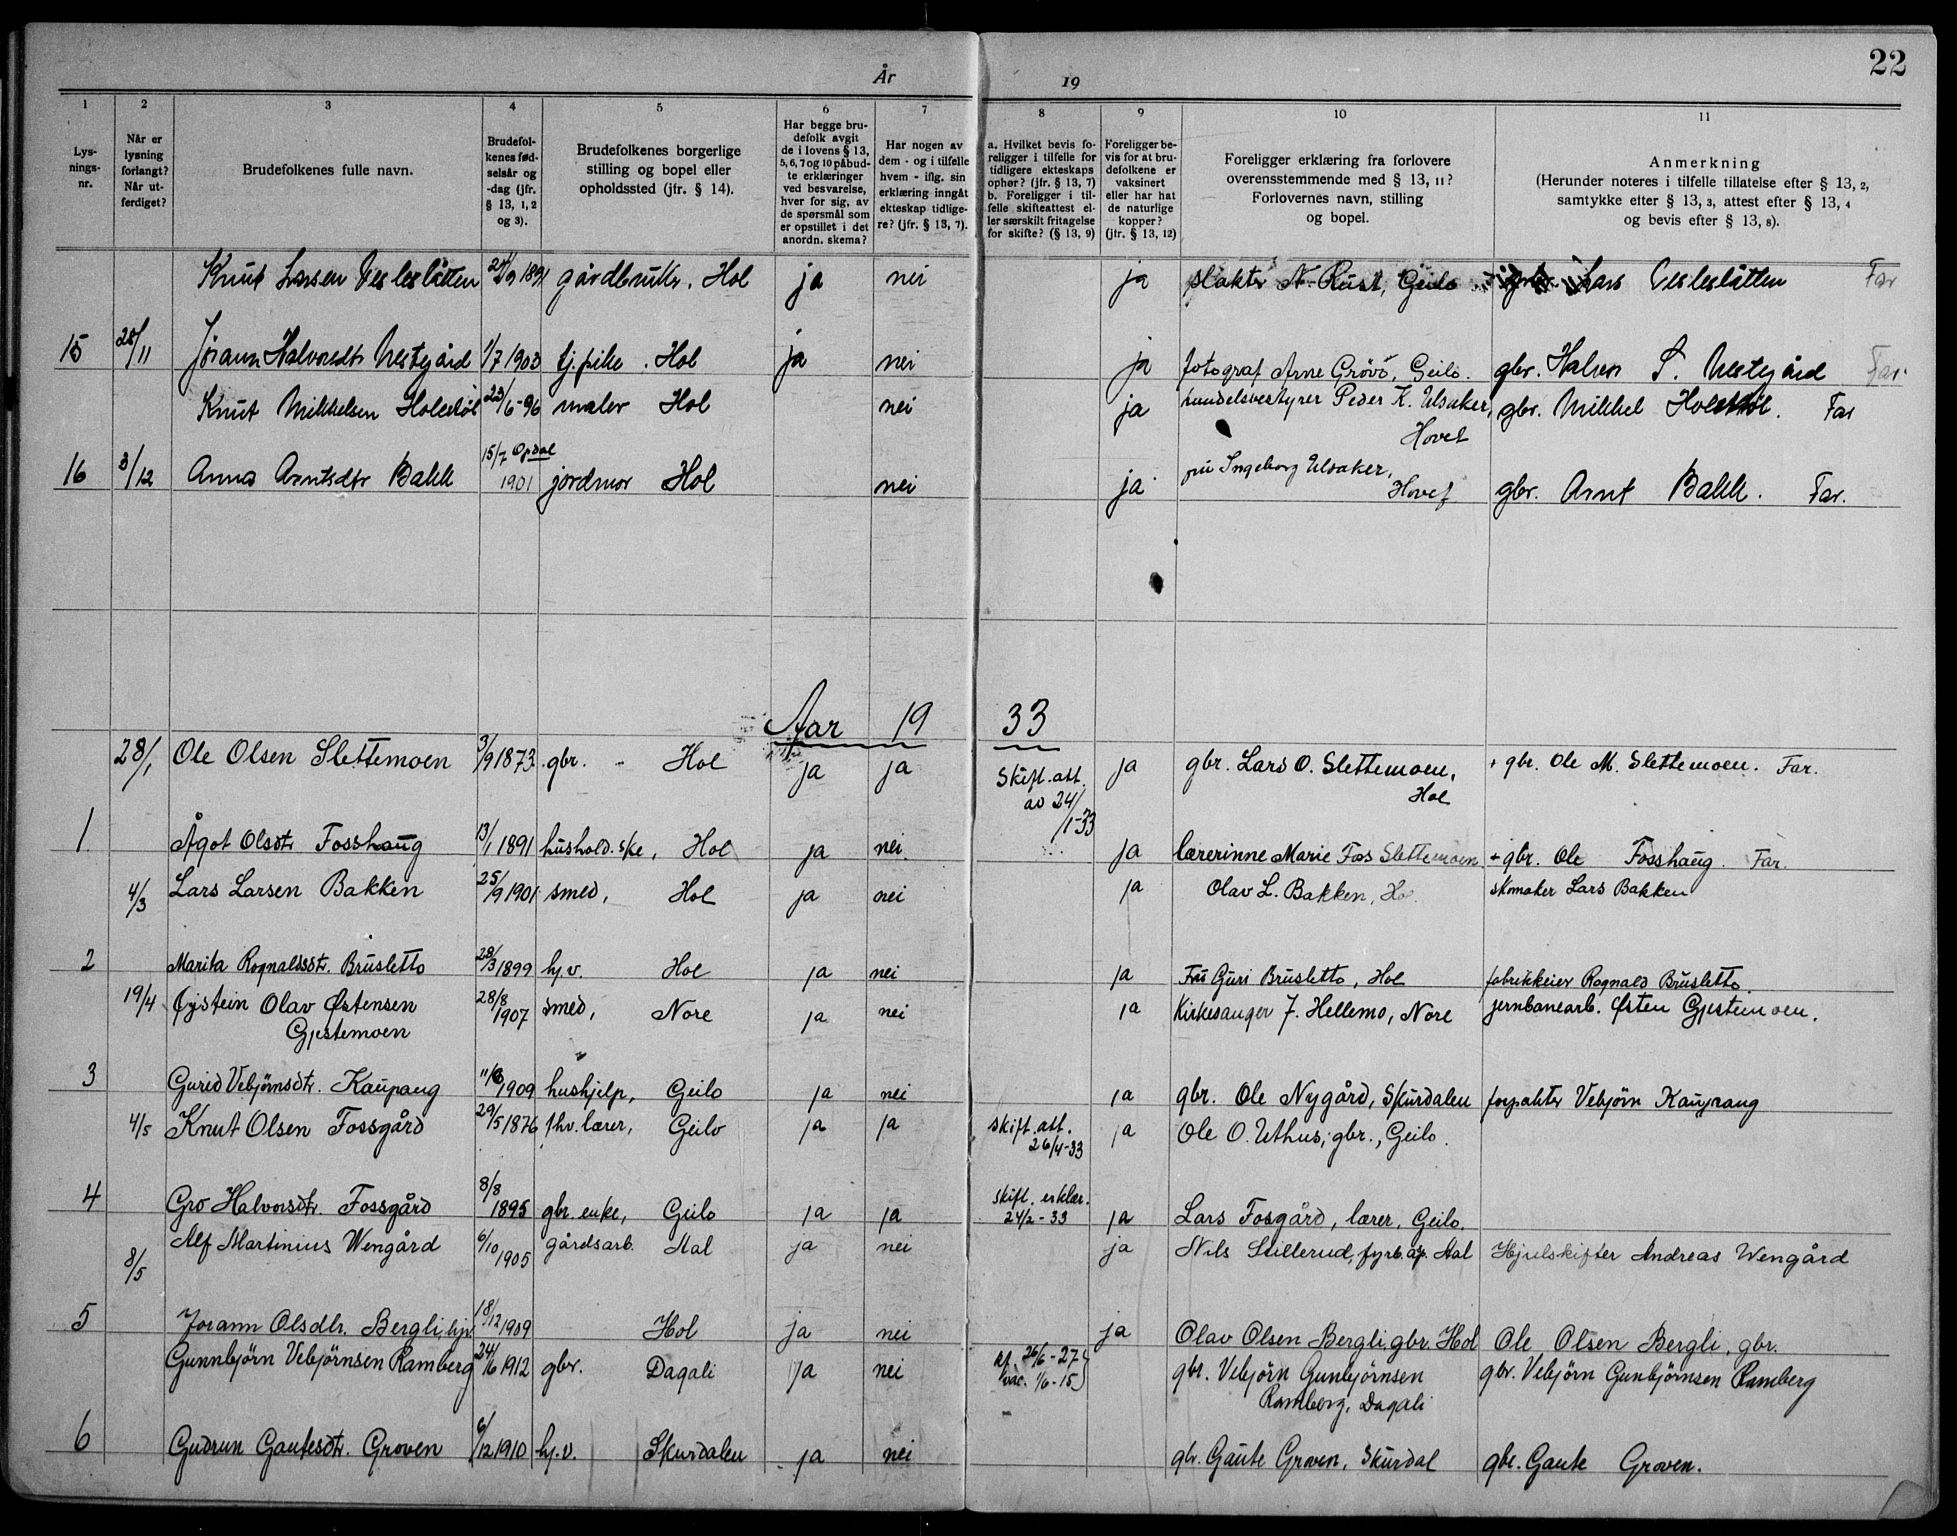 22
År 19
1 2 3 4 5 6 7 8 9 10 11
Lys-
nings-
nr.
Når er
lysning
forlangt?
Når ut-
ferdiget?
Brudefolkenes fulle navn.
Brudefol-
kenes fød-
selsår og
-dag (jfr.
§ 13, 1, 2
og 3).
Brudefolkenes borgerlige
stilling og bopel eller
opholdssted (jfr. § 14).
Har begge bru-
defolk avgit
de i lovens § 13,
5, 6, 7 og 10 påbud-
te erklæringer
ved besvarelse,
hver for sig, av
de spørsmål som
er opstillet i det
anordn. skema?
Har nogen av
dem - og i tilfelle
hvem - iflg. sin
erklæring inngåt
ekteskap tidlige-
re? (jfr. § 13, 7).
a. Hvilket bevis fo-
religger i tilfelle for
tidligere ekteskaps
ophør? (jfr. § 13, 7)
b. Foreligger i til-
felle skifteattest el-
ler særskilt fritagelse
for skifte? (§ 13, 9)
Foreligger be-
vis for at bru-
defolkene er
vaksinert
eller har hat
de naturlige
kopper?
(jfr. § 13, 12)
Foreligger erklæring fra forlovere
overensstemmende med § 13, 11?
Forlovernes navn, stilling
og bopel.
Anmerkning
(Herunder noteres i tilfelle tillatelse efter § 13, 2,
samtykke efter § 13, 3, attest efter § 13, 4
og bevis efter § 13, 8).
Knut Larsen Vesleslåtten 24/9 1891 gårdbruker. Hol ja nei ja slakter N. Rust, Geilo Lars Vesleslåtten Far
15 28/11 Jørann Halvorsdtr Nestegård 1/7 1903 tj.pike. Hol ja nei ja fotograf Arne Grøvo, Geilo. gbr. Halvor S. Nestegård Far.
Knut Mikkelsen Holestøl 23/6-96 maler Hol nei ja handelsbestyrer Peder K. Ulsaker, Hovet gbr. Mikkel Holestøl. Far
16 3/12 Anna Arntsdtr Bakk 15/7 Opdal 1901 jordmor Hol nei ja fru Ingeborg Ulsaker, Hovet gbr. Arnt Bakk. Far.
Aar 19 33
28/1 Ole Olsen Slettemoen 3/9 1873. gbr. - Hol ja ja Skift. att. av 24/1-33 ja gbr. Lars O. Slettemoen, Hol + gbr. Ole M. Slettemoen. Far.
1. Ågot Olsdtr Fosshaug 13/1 1891 hushold.ske, Hol ja nei. ja lærerinne Marie Fos Slettemoen + gbr. Ole Fosshaug. Far.
4/3 Lars Larsen Bakken 25/9 1901 smed, Hol ja nei ja Olav L. Bakken, Ho skomaker Lars Bakken
2 Marita Rognaldsdtr. Brusletto 28/3 1899 hj.v. Hol ja nei ja Fru Guri Brusletto, Hol fabrikkeier Rognald Brusletto.
19/4 Øystein Olav Østensen Gjestemoen 28/8 1907 smed, Nore ja nei ja Kirkesanger J. Hellemo, Nore jernbanearb. Østen Gjestemoen.
3 Gurid Vebjørnsdtr. Kaupang 11/6 1909 hushjelp, Geilo ja nei ja gbr. Ole Nygård, Skurdalen forpakter Vebjørn Kaupang
4/5 Knut Olsen Fossgård 29/5 1876 fhv. lærer, Geilo ja ja skift. att. 26/4-33 ja Ole O. Uthus, gbr., Geilo.
4 Gro Halvorsdtr. Fossgård 8/8 1895 gbr. enke, Geilo ja ja skift. erklær. 24/2-33 ja Lars Fosgård, lærer, Geilo.
8/5 Alf Martinius Wengård 6/10 1905 gårdsarb. Aal ja nei ja Nils Lillerud, fyrb.asp. Aal Hjulskifter Andreas Wengård
5 Jorann Olsdtr. Bergli, hjv 18/12 1909 Hol ja nei ja Olav Olsen Bergli, gbr. Hol Ole Olsen Bergli, gbr.
Gunnbjørn Vebjørnsen Ramberg 24/6 1912 gbr. Dagali ja nei 26/6-27 vac. 1/6-15 gbr. Vebjørn Gunbjørnsen Ramberg, Dagali gbr. Vebjørn Gunbjørnsen Ramberg
6 Gudrun Gautesdtr. Groven 6/12 1910 hj.v. Skurdalen ja nei gbr. Gaute Groven, Skurdal gbr. Gaute Groven.